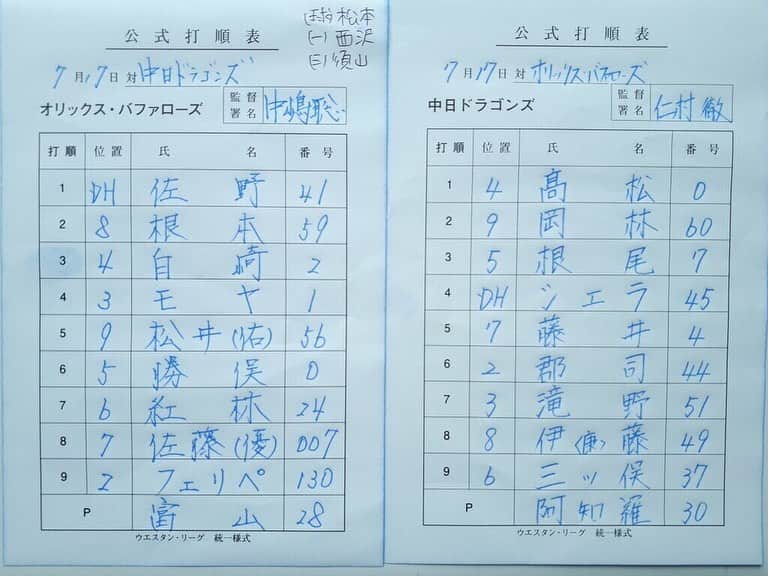 (球)松本
(一)西沢
(三)須山
公式打順表
7月17日対 中日ドラゴンズ
オリックス・バファローズ 監督署名 中嶋聡
打順 位置 氏名 番号
1 DH 佐野 41
2 8 根本 59
3 4 白崎 2
4 3 モヤ 1
5 9 松井(佑) 56
6 5 勝俣 0
7 6 紅林 24
8 7 佐藤(優) 007
9 2 フェリペ 130
P 富山 28
ウエスタン・リーグ 統一様式
公式打順表
7月17日対 オリックス・バファローズ
中日ドラゴンズ 監督署名 仁村徹
打順 位置 氏名 番号
1 4 髙松 0
2 9 岡林 60
3 5 根尾 7
4 DH シエラ 45
5 7 藤井 4
6 2 郡司 44
7 3 滝野 51
8 8 伊藤(康) 49
9 6 三ッ俣 37
P 阿知羅 30
ウエスタン・リーグ 統一様式